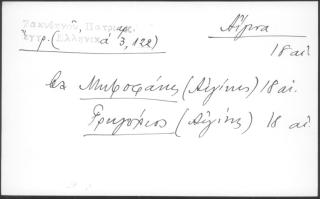 Ζακυθηνοῦ, Πατριαρ.
ἔγγρ. (Ἑλληνικά 3, 122)
Αἴγινα
18 αἰ.
βλ Μητροφάνης (Αἰγίνης) 18 αἰ.
Γρηγόριος (Αἰγίνης) 18 αἰ.